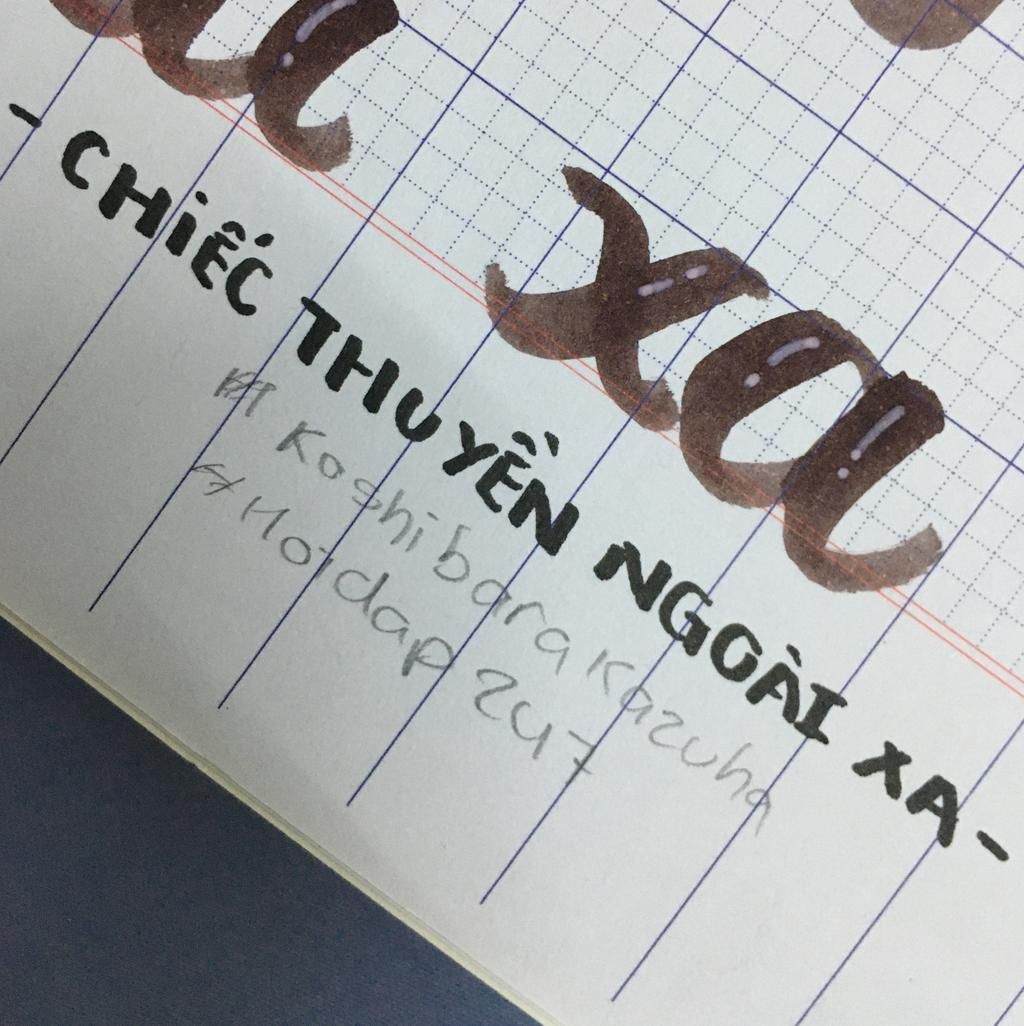 xa
- CHIẾC THUYỀN NGOÀI XA -
Koshibara Kazuha
Hoidap 247